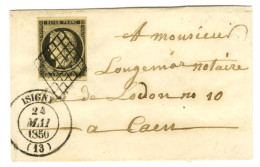 REPUB. FRANC.
A Monsieur
Lougemar notaire
de Lodon no 10
a Caen
ISIGNY
24
MAI
1850
(13)